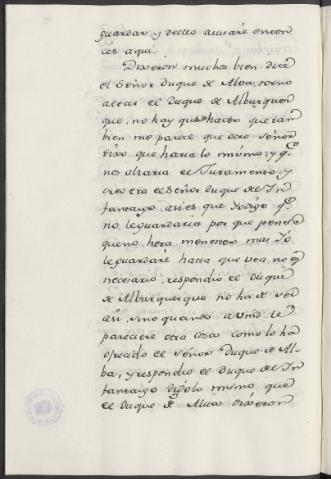 guardar, y dello avisaré enton
ces aqui.
Dixeron mucho bien dice
el Señor Duque de Alva, torno
alzar el Duque de Alburquer
que, no hay que hacer que tan
bien me parece que otro señor
dixo que haria lo mismo, y q.e
nos alzaria el Juramento, y
creo era el Señor Duque de In
fantazgo, asi es que Yo digo q.e
no le guardaria por que pensé
que no hera menester mas Yo
le guardaré hasta que vea no es
necesario, respondio el Duque
de Alburquerque no ha de ser
asi, sino quando a Vmd. le
pareciere otra cosa como lo ha
ofrecido el Señor Duque de Al-
ba, y respondio el Duque de In
fantazgo digo lo mismo que
el Duque de Alva dixeron